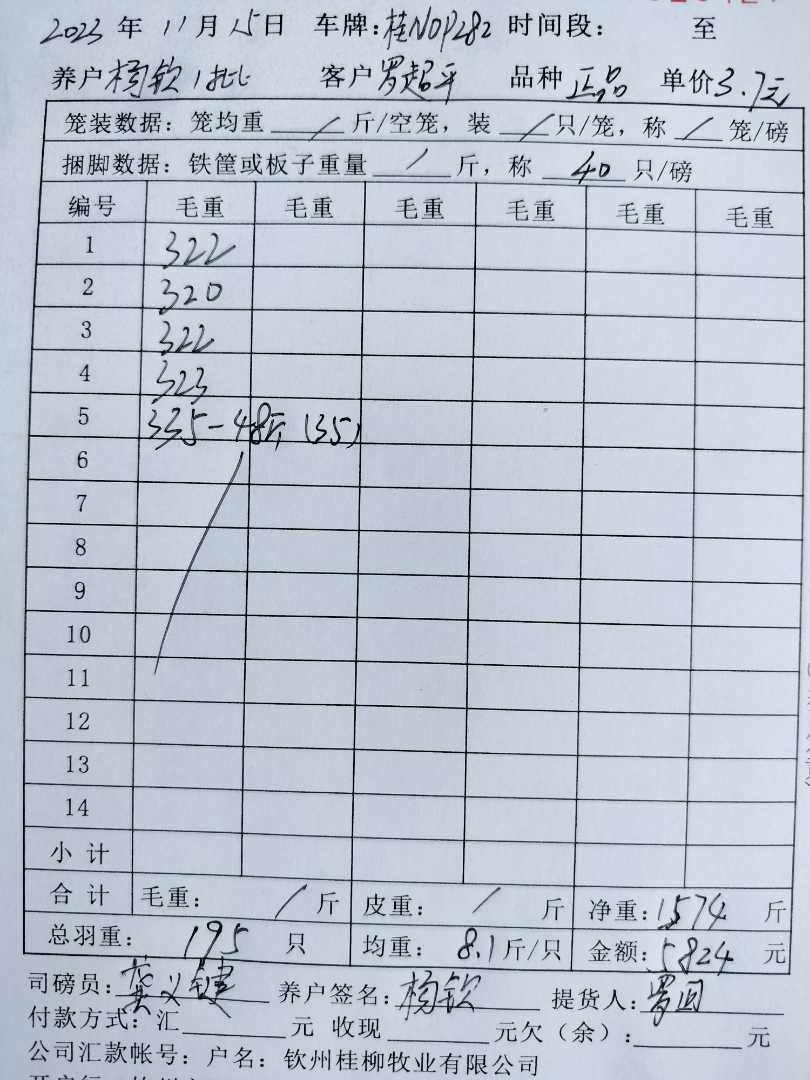 2023 年 11 月 15 日 车牌: 桂N0P282 时间段: 至
养户 杨钦1批 客户 罗超平 品种 正品 单价 3.7元
笼装数据: 笼均重 / 斤/空笼, 装 / 只/笼, 称 / 笼/磅
捆脚数据: 铁筐或板子重量 / 斤, 称 40 只/磅
编号 毛重 毛重 毛重 毛重 毛重 毛重
1 322
2 320
3 322
4 323
5 335-48斤 (35)
6
7
8
9
10
11
12
13
14
小 计
合 计 毛重: / 斤 皮重: / 斤 净重: 1574 斤
总羽重: 195 只 均重: 8.1 斤/只 金额: 5824 元
司磅员: 龚义键 养户签名: 杨钦 提货人: 罗
付款方式: 汇 元 收现 元欠(余): 元
公司汇款帐号: 户名: 钦州桂柳牧业有限公司